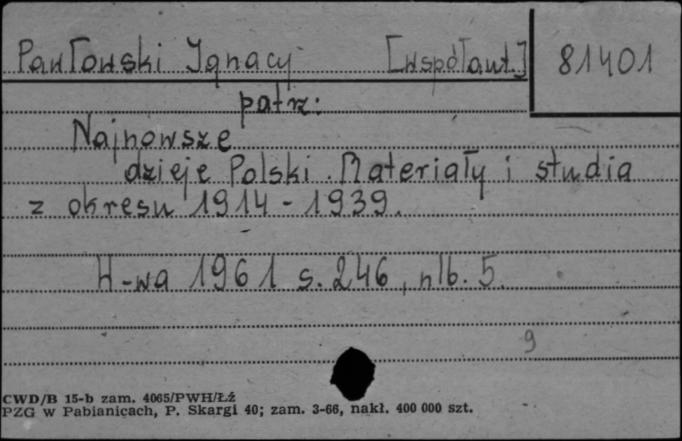 Pawłowski Ignacy [współaut.] 81401
patrz:
Najnowsze
dzieje Polski. Materiały i studia
z okresu 1914 - 1939.
W-wa 1961 s. 246, nlb. 5.
9
CWD/B 15-b zam. 4065/PWH/Łź
PZG w Pabianicach, P. Skargi 40; zam. 3-66, nakł. 400 000 szt.